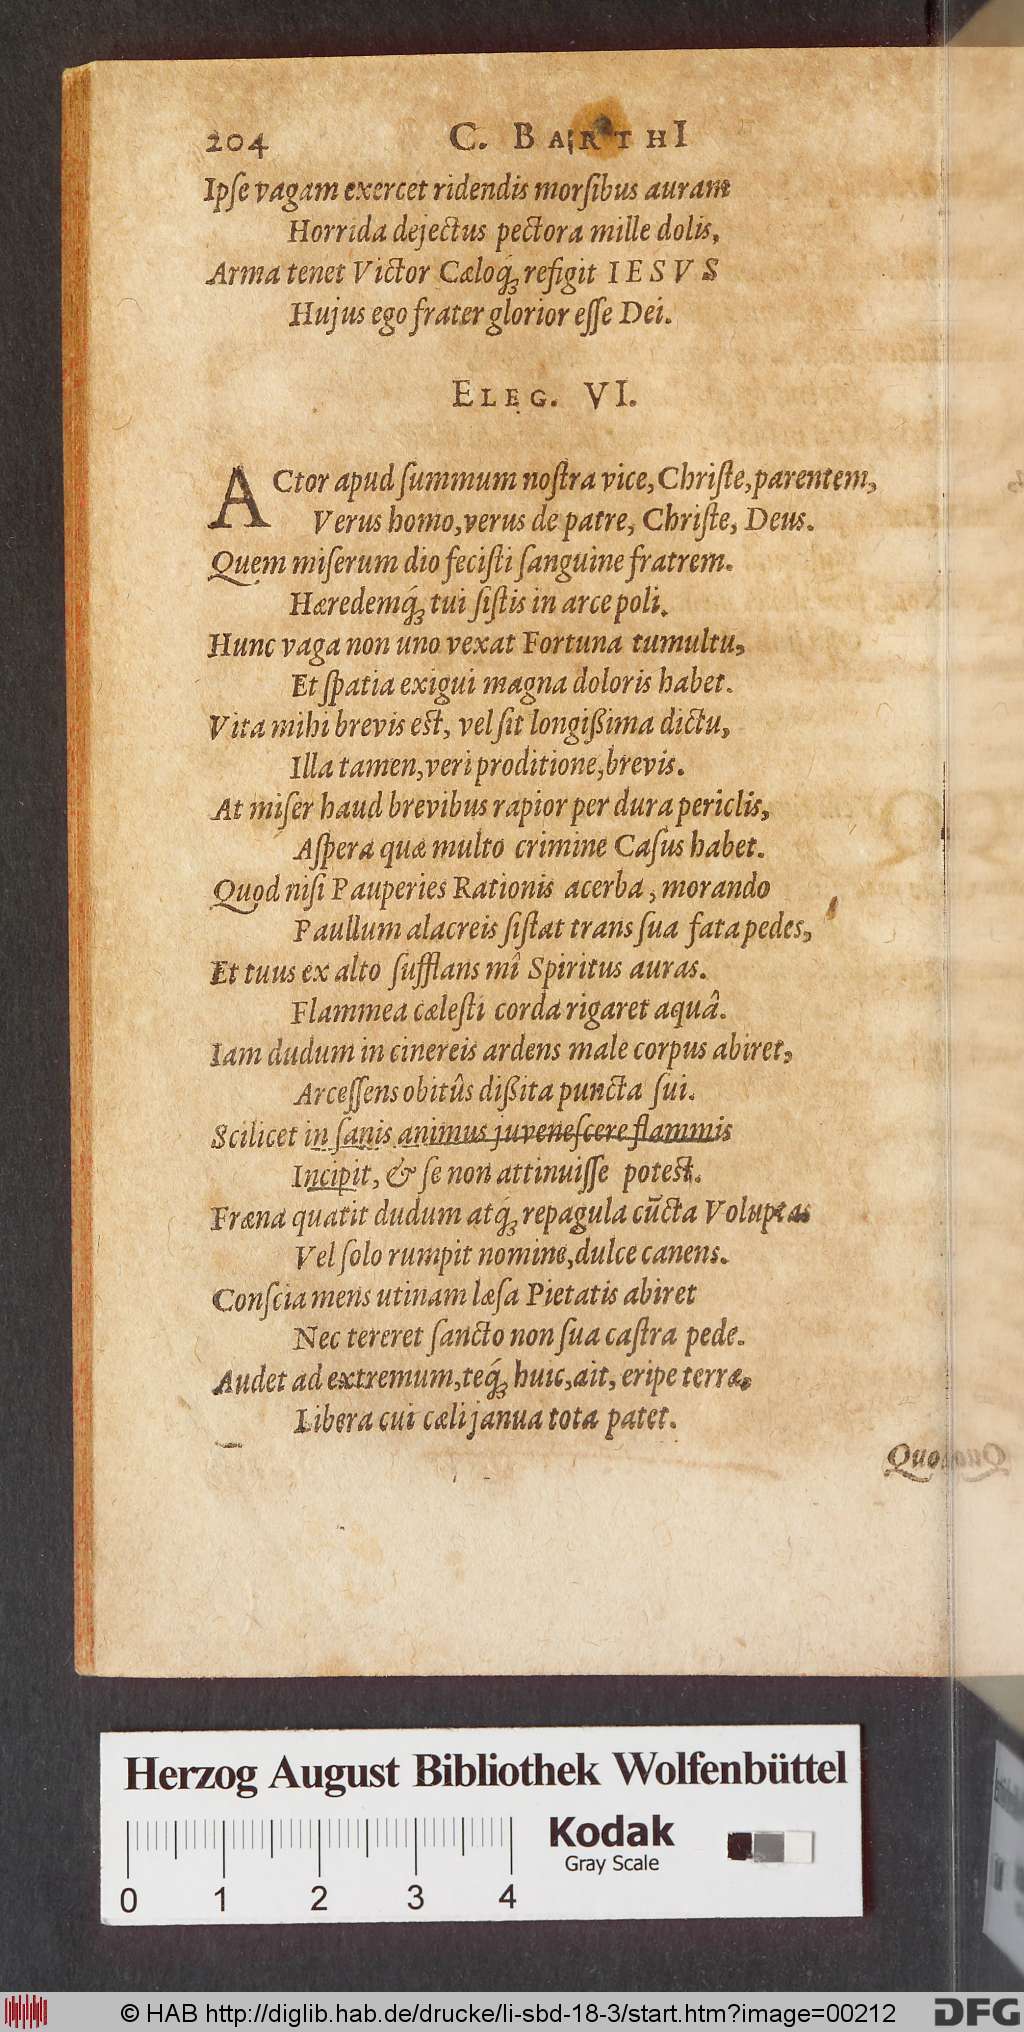 204 C. BARTHI
Ipſe vagam exercet ridendis morſibus auram
Horrida dejectus pectora mille dolis,
Arma tenet Victor Cæloq́; refigit IESVS
Hujus ego frater glorior eſſe Dei.
ELEG. VI.
ACtor apud ſummum noſtra vice, Chriſte, parentem,
Verus homo, verus de patre, Chriſte, Deus.
Quem miſerum dio feciſti ſanguine fratrem.
Hæredemq́; tui ſiſtis in arce poli.
Hunc vaga non uno vexat Fortuna tumultu,
Et ſpatia exigui magna doloris habet.
Vita mihi brevis est, vel ſit longißima dictu,
Illa tamen, veri proditione, brevis.
At miſer haud brevibus rapior per dura periclis,
Aſpera quæ multo crimine Caſus habet.
Quod niſi Pauperies Rationis acerba, morando
Paullum alacreis ſiſtat trans ſua fata pedes,
Et tuus ex alto ſufflans mî Spiritus auras.
Flammea cæleſti corda rigaret aquâ.
Iam dudum in cinereis ardens male corpus abiret,
Arceſſens obitûs dißita puncta ſui.
Scilicet in ſanis animus juveneſcere flammis
Incipit, & ſe non attinuiſſe potest.
Fræna quatit dudum atq́; repagula cūcta Voluptas
Vel ſolo rumpit nomine, dulce canens.
Conſcia mens utinam læſa Pietatis abiret
Nec tereret ſancto non ſua caſtra pede.
Audet ad extremum, teq́; huic, ait, eripe terræ,
Libera cui cæli janua tota patet.
Herzog August Bibliothek Wolfenbüttel
Kodak
Gray Scale
0 1 2 3 4
© HAB http://diglib.hab.de/drucke/li-sbd-18-3/start.htm?image=00212
DFG